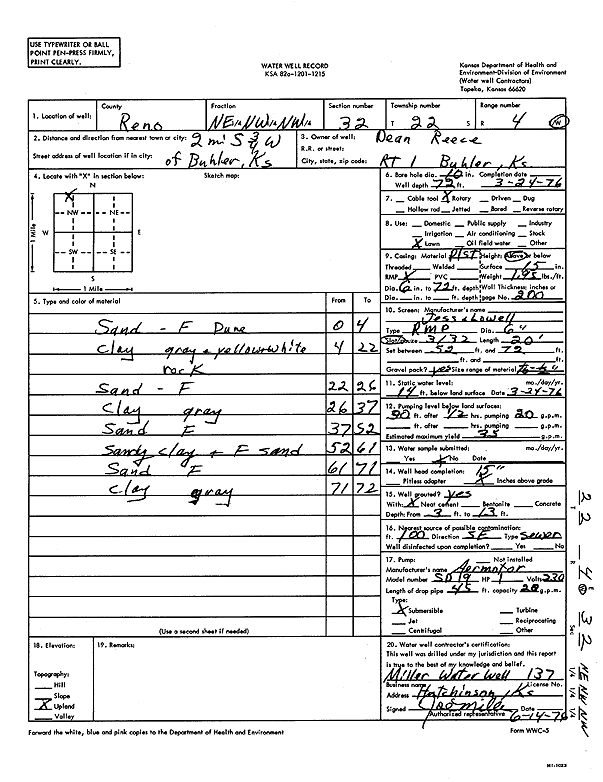 USE TYPEWRITER OR BALL
POINT PEN-PRESS FIRMLY,
PRINT CLEARLY.
WATER WELL RECORD
KSA 82a-1201-1215
Kansas Department of Health and
Environment-Division of Environment
(Water well Contractors)
Topeka, Kansas 66620
1. Location of well: County Reno Fraction NE¼NW¼NW¼ Section number 32 Township number T 22 S Range number R 4 W
2. Distance and direction from nearest town or city: 2 mi S 3/4 W
Street address of well location if in city: of Buhler, Ks
3. Owner of well: Dean Reece
R.R. or street:
City, state, zip code: RT 1 Buhler, Ks.
4. Locate with "X" in section below:
Sketch map:
N
X
NW NE
W E
SW SE
S
1 Mile
1 Mile
5. Type and color of material From To
Sand - F Dune 0 4
Clay gray & yellow & white 4 22
rock
Sand - F 22 26
Clay gray 26 37
Sand F 37 52
Sandy clay + F sand 52 61
Sand F 61 71
Clay gray 71 72
(Use a second sheet if needed)
6. Bore hole dia. 10 in. Completion date
Well depth 72 ft. 3-24-76
7. Cable tool X Rotary Driven Dug
Hollow rod Jetted Bored Reverse rotary
8. Use: Domestic Public supply Industry
Irrigation Air conditioning Stock
X Lawn Oil field water Other
9. Casing: Material Plst Height: Above or below
Threaded Welded Surface 15 in.
RMP X PVC Weight 1.95 lbs./ft.
Dia. 6 in. to 72 ft. depth Wall Thickness: inches or
Dia. in. to ft. depth gage No. 200
10. Screen: Manufacturer's name
Jess & Lowell
Type RMP Dia. 6"
Slot/gauze 3/32 Length 20'
Set between 52 ft. and 72 ft.
ft. and ft.
Gravel pack? yes Size range of material
11. Static water level: mo./day/yr.
14 ft. below land surface Date 3-24-76
12. Pumping level below land surfaces:
20 ft. after 1/2 hrs. pumping 20 g.p.m.
ft. after hrs. pumping g.p.m.
Estimated maximum yield 35 g.p.m.
13. Water sample submitted: mo./day/yr.
Yes X No Date
14. Well head completion: 15"
Pitless adapter X Inches above grade
15. Well grouted? yes
With: X Neat cement Bentonite Concrete
Depth: From 3 ft. to 13 ft.
16. Nearest source of possible contamination:
ft. 100 Direction SE Type Sewer
Well disinfected upon completion? Yes No
17. Pump: Not installed
Manufacturer's name Aermotor
Model number SD19 HP 1 Volts 230
Length of drop pipe 45 ft. capacity 20 g.p.m.
Type:
X Submersible Turbine
Jet Reciprocating
Centrifugal Other
18. Elevation:
19. Remarks:
Topography:
Hill
Slope
X Upland
Valley
20. Water well contractor's certification:
This well was drilled under my jurisdiction and this report
is true to the best of my knowledge and belief.
Miller Water Well 137
Business name License No.
Address Hutchinson, Ks
Signed Date
Authorized representative 6-14-76
Forward the white, blue and pink copies to the Department of Health and Environment
Form WWC-5
T 22 R 4 E W Sec 32 ¼ ¼ ¼ NE NW NW